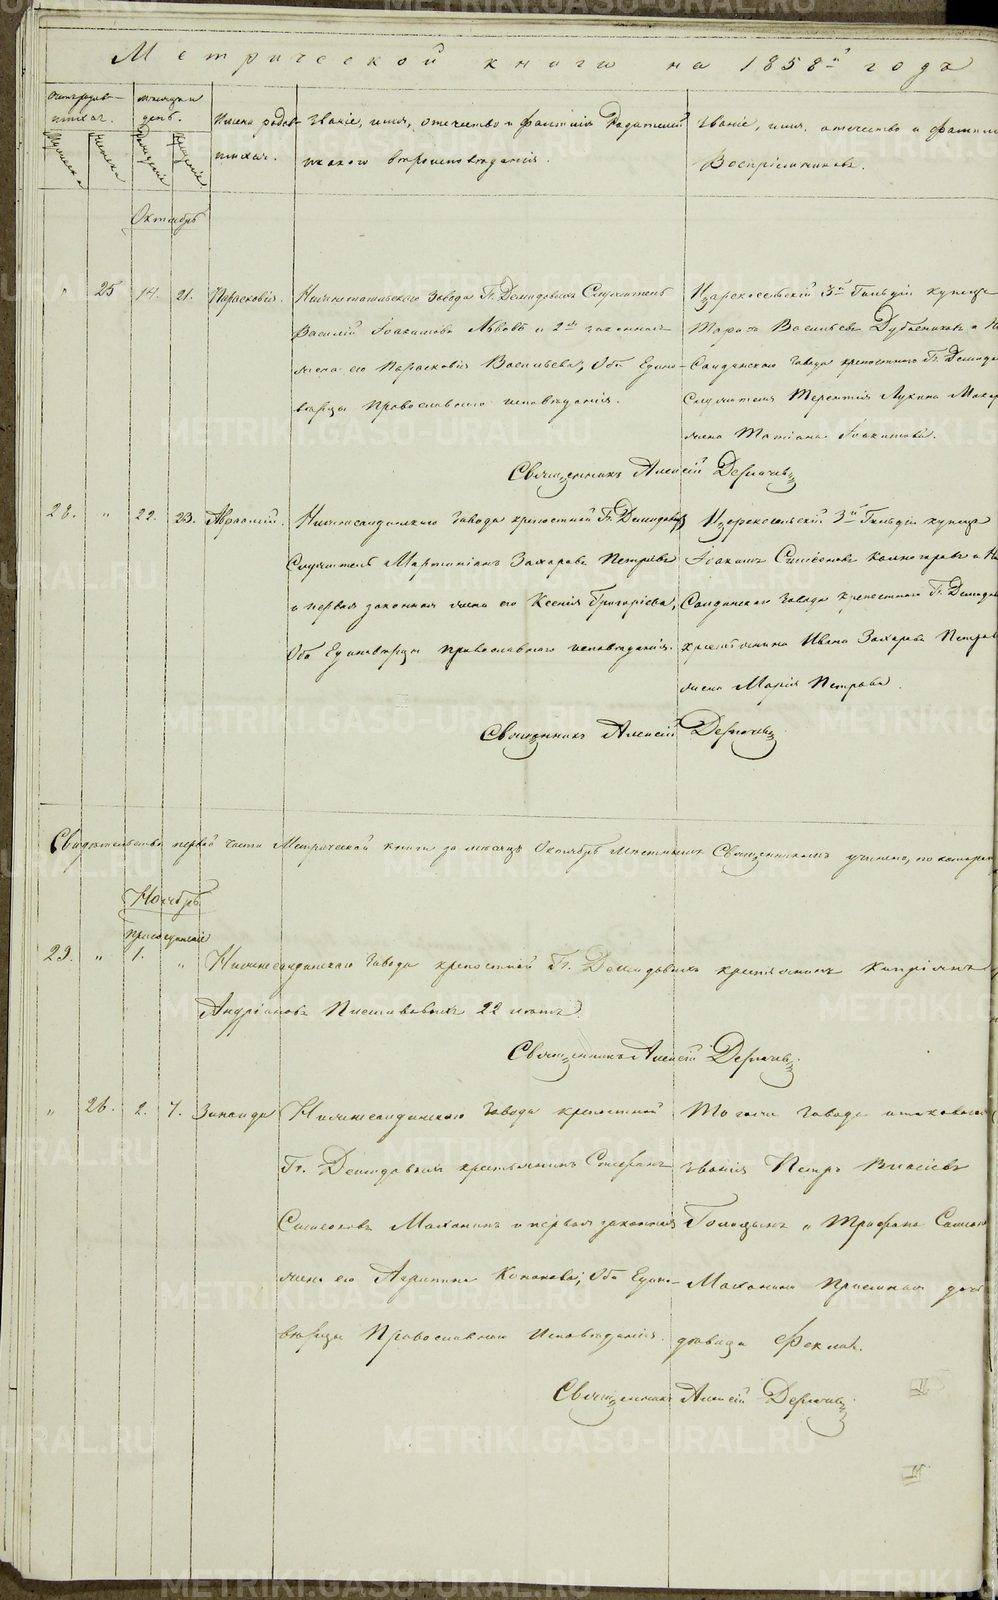 Метрической книги на 1858й годъ
Счетъ родив-
шихся.
Мужеска
Женска
Мѣсяцъ и
день.
Рожденiя
Крещенiя
Имена родив-
шихся.
Званiе, имя, отечество и фамилiя Родителей
и какого вѣроисповѣданiя.
Званiе, имя, отечество и фамилiя
Воспрiемниковъ.
Октябрь
" 25 14. 21. Парасковiя.
Нижнетагильскаго завода Гг. Демидовыхъ Служитель
Василiй Iоакимовъ Львовъ и 2я законная
жена его Парасковiя Васильева, Оба Едино-
вѣрцы Православнаго исповѣданiя.
Царскосельскiй 3й Гильдiи купецъ
Тарасъ Васильевъ Дубленниковъ и
Салдинскаго завода крепостнаго Гг. Демидо
Служителя Терентiя Лукина Макар
жена Татiана Iоакимова.
Священникъ Алексiй Дерягинъ
28. " 22. 23. Авраамiй.
Нижнесалдинскаго завода крепостной Гг. Демидовыхъ
Служитель Мартинiанъ Захаровъ Петровъ
и первая законная жена его Ксенiя Григорiева,
Оба Единовѣрцы православнаго исповѣданiя.
Царскосельскiй 3й Гильдiи купецъ
Iоакимъ Симеоновъ и Ни
Салдинскаго завода крепостнаго Гг. Демидов
крестьянина Ивана Захарова Петров
жена Марiя Петрова.
Священникъ Алексiй
Свидѣтельство первой части Метрической книги за мѣсяцъ Октябрь мѣстнымъ Священникомъ учинено, по которой
Ноябрь
Присоединенiе
29. " 1. " Нижнесалдинскаго завода крепостной Гг. Демидовыхъ крестьянинъ Кипрiянъ
Андрiановъ 22 лѣтъ.
Священникъ Алексiй
" 26. 2. 7. Зинаида
Нижнесалдинскаго завода крепостной
Гг. Демидовыхъ крестьянинъ Стефанъ
Симеоновъ Маханинъ и первая законная
жена его Агрипина Кононова; Оба Едино-
вѣрцы Православнаго Исповѣданiя.
Тогоже завода и таковаго
званiя Петръ Власiевъ
Голицынъ и Трифона
Маханина Приемная дочь
дѣвица Фекла.
Священникъ Алексiй